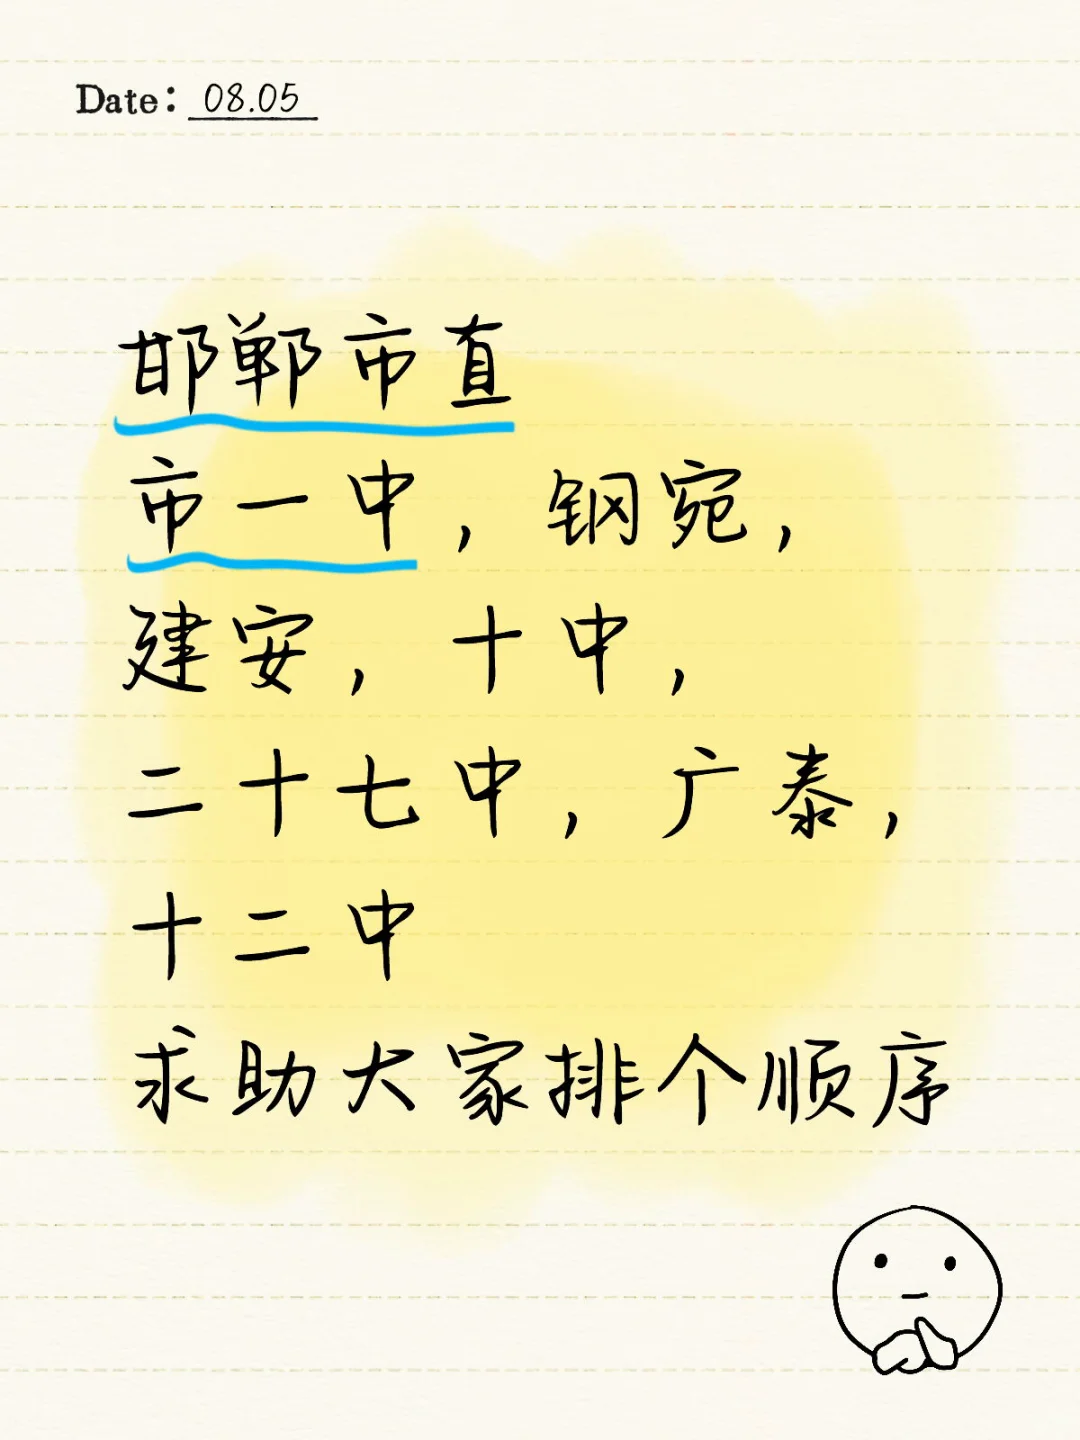 Date: 08.05
邯郸市直
市一中，钢宛，
建安，十中，
二十七中，广泰，
十二中
求助大家排个顺序